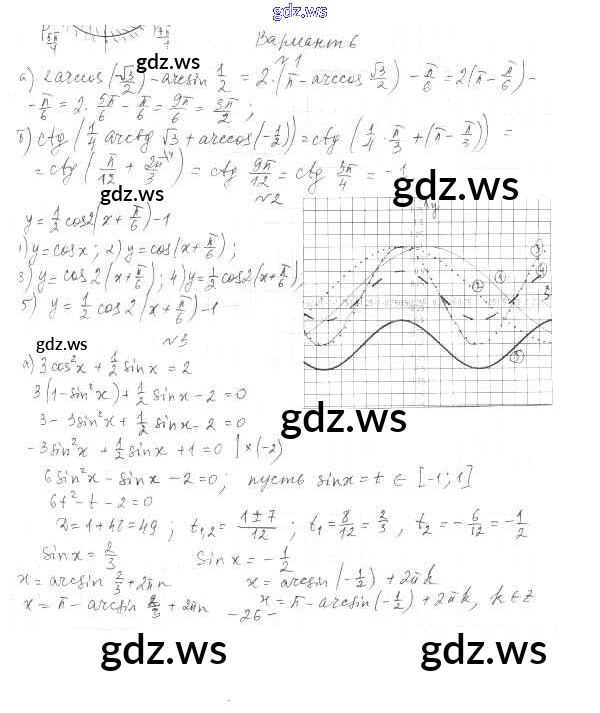 gdz.ws
5π/4
7π/4
Вариант 6
№1
а) 2arccos(-√3/2) - arcsin 1/2 = 2·(π - arccos √3/2) - π/6 = 2(π - π/6) -
- π/6 = 2· 5π/6 - π/6 = 9π/6 = 3π/2 ;
б) ctg(1/4 arctg √3 + arccos(-1/2)) = ctg(1/4 · π/3 + (π - π/3)) =
= ctg(π/12 + 2π/3) = ctg 9π/12 = ctg 3π/4 = -1
№2
y = 1/2 cos2(x + π/6) - 1
1) y = cosx ; 2) y = cos(x + π/6) ;
3) y = cos 2(x + π/6) ; 4) y = 1/2 cos2(x + π/6),
5) y = 1/2 cos 2(x + π/6) - 1
y
№3
а) 3cos²x + 1/2 sinx = 2
3(1 - sin²x) + 1/2 sinx - 2 = 0
3 - 3sin²x + 1/2 sinx - 2 = 0
- 3sin²x + 1/2 sinx + 1 = 0 | ×(-2)
6sin²x - sinx - 2 = 0 ; пусть sinx = t ∈ [-1; 1]
6t² - t - 2 = 0
D = 1 + 48 = 49 ; t₁,₂ = 1±7/12 ; t₁ = 8/12 = 2/3 , t₂ = - 6/12 = - 1/2
sinx = 2/3 sinx = - 1/2
x = arcsin 2/3 + 2πn x = arcsin(-1/2) + 2πk
x = π - arcsin 2/3 + 2πn x = π - arcsin(-1/2) + 2πk, k∈Z
- 26 -
gdz.ws
gdz.ws
gdz.ws
gdz.ws
gdz.ws
gdz.ws
gdz.ws